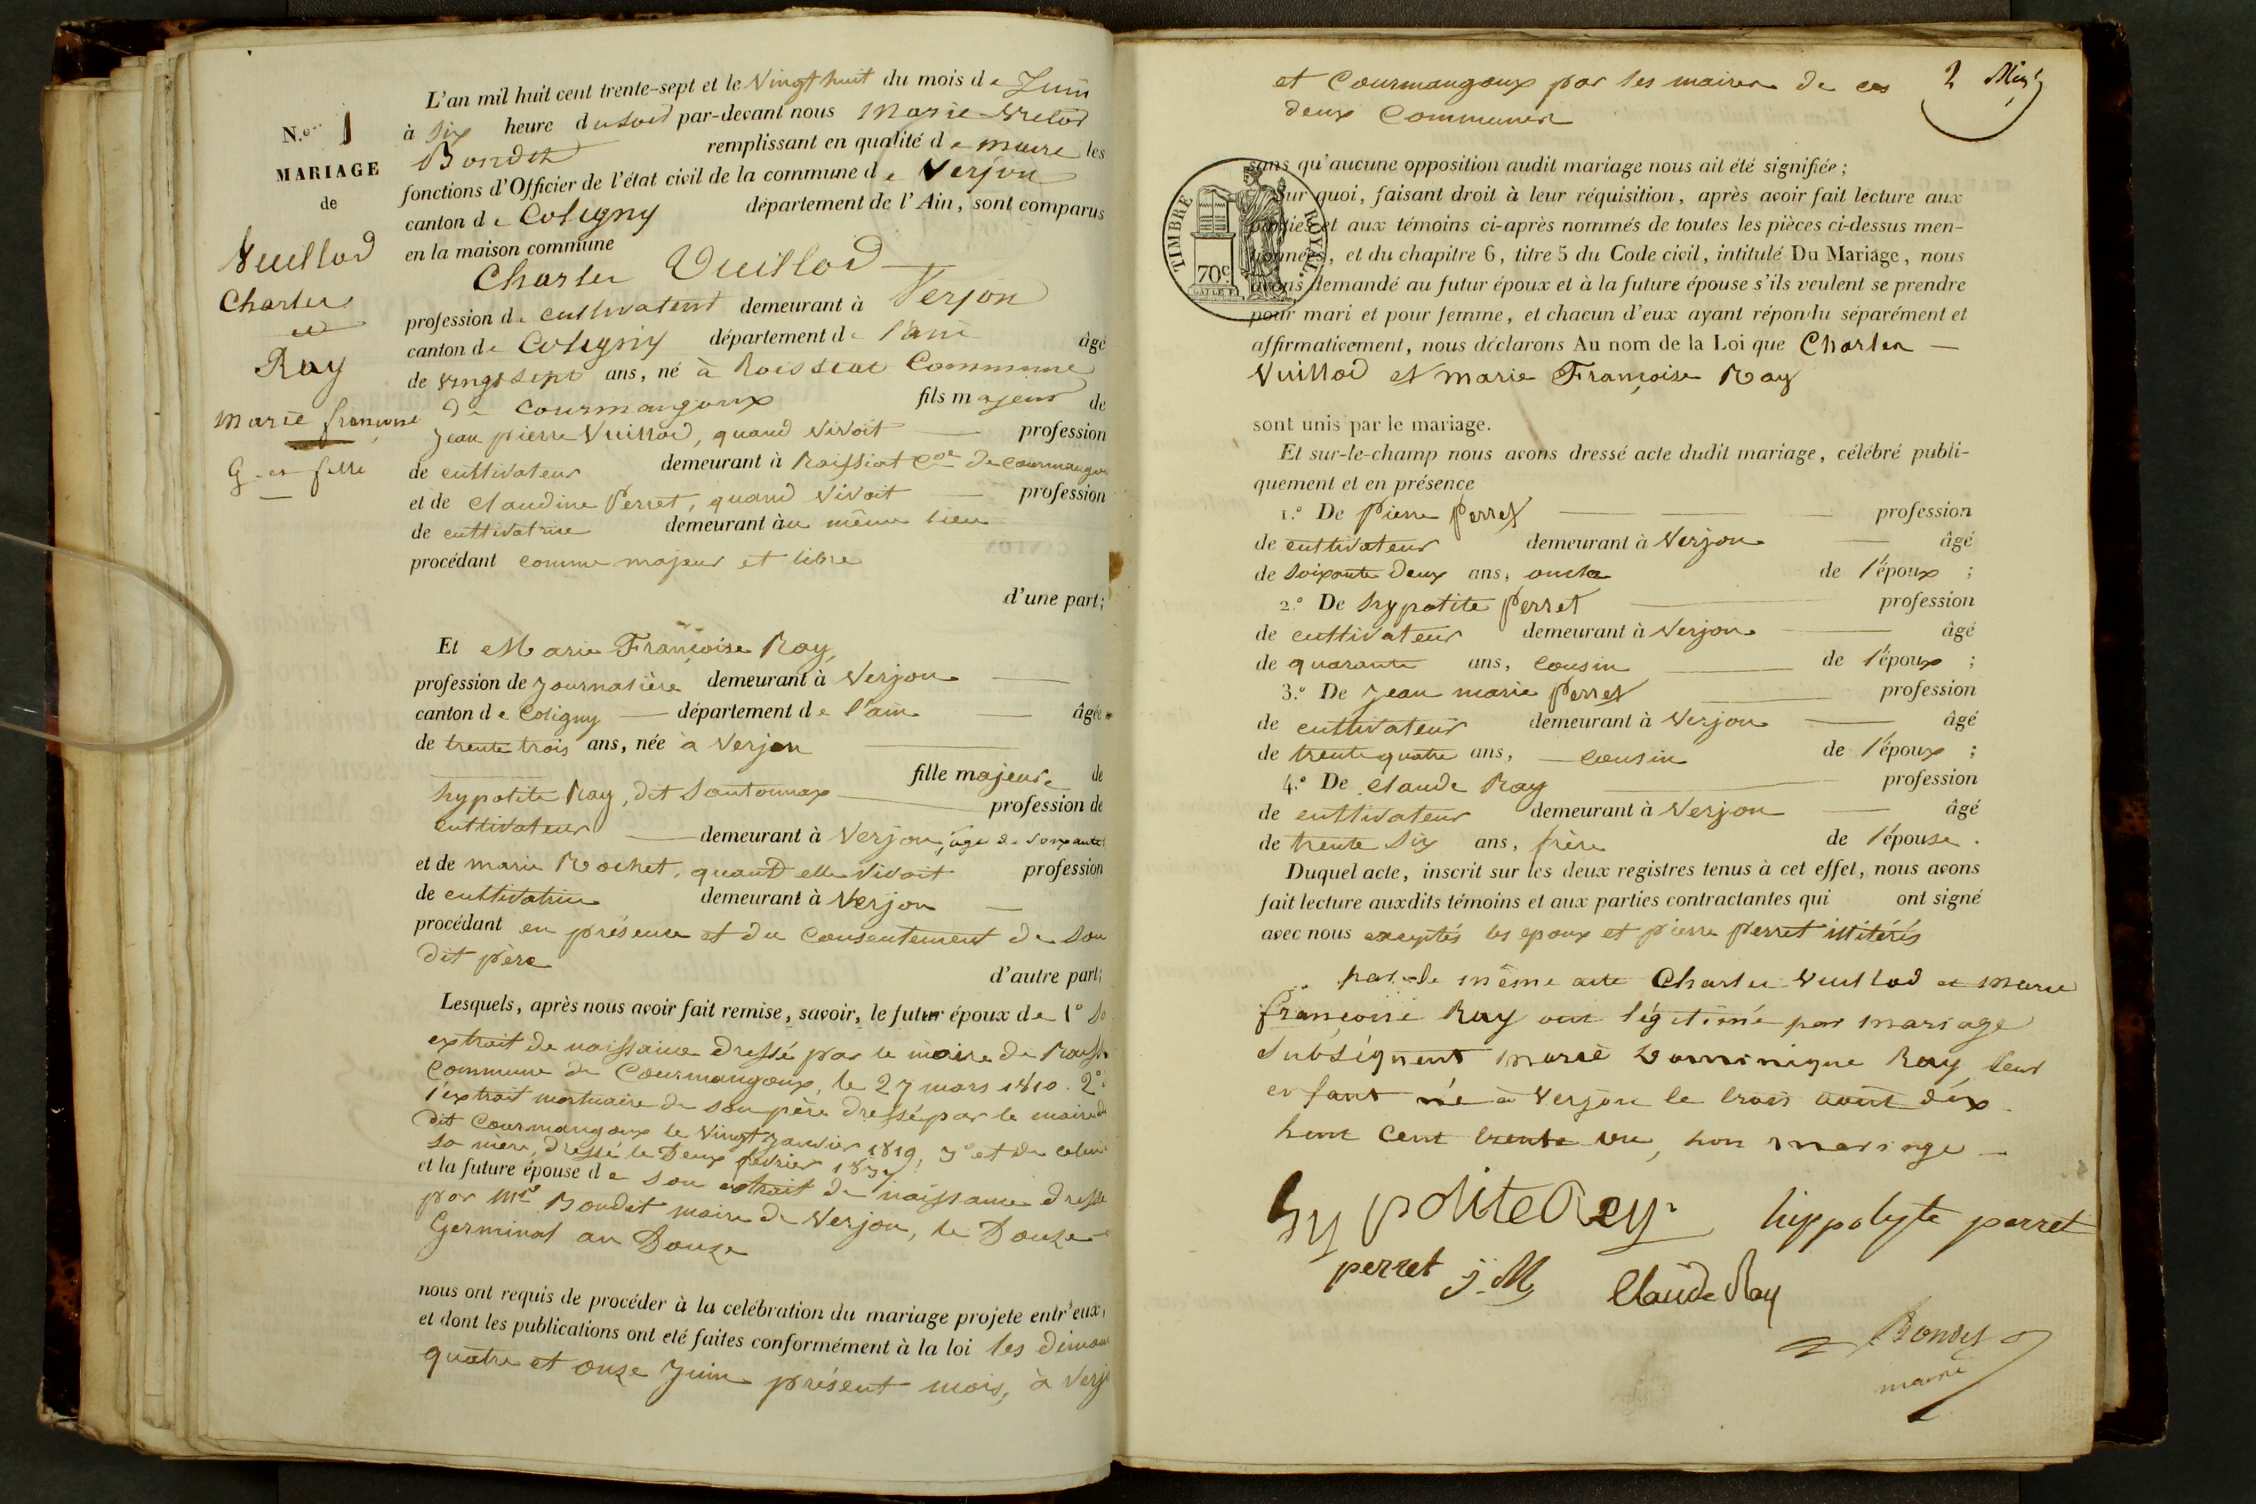 N.er 1
MARIAGE
de
Vuillod
Charles
et
Ray
Marie françoise
G. et fille
L'an mil huit cent trente-sept et le Vingt huit du mois de Juin
à six heure du soir par-devant nous Marie
Bondet remplissant en qualité de maire les
fonctions d'Officier de l'état civil de la commune de Verjon
canton de Coligny département de l'Ain, sont comparus
en la maison commune
Charles Vuillod
profession de cultivateur demeurant à Verjon
canton de Coligny département de l'ain âgé
de vingt sept ans, né à Roissiat Commune
de Courmangoux fils majeur de
Jean pierre Vuillod, quand vivoit profession
de cultivateur demeurant à Roissiat Cne de Courmangou
et de Claudine Perret, quand vivoit profession
de cultivatrice demeurant au même lieu
procédant comme majeur et libre
d'une part;
Et Marie Françoise Ray,
profession de Journalière demeurant à Verjon
canton de Coligny département de l'ain âgée
de trente trois ans, née à Verjon
fille majeure de
hypolite Ray, dit Santonnax profession de
cultivateur demeurant à Verjon, âgé de soixante
et de marie Rochet, quand elle vivoit profession
de cultivatrice demeurant à Verjon
procédant en présence et du consentement de son
dit père
d'autre part;
Lesquels, après nous avoir fait remise, savoir, le futur époux de 1° So
extrait de naissance dressé par le maire de Roiss
Commune de Courmangoux, le 27 mars 1810. 2°
l'extrait mortuaire de son père dressé par le maire du
dit Courmangoux le vingt Janvier 1819, 3° et de celui
sa mère, dressé le Deux février 1837
et la future épouse de son extrait de naissance dressé
par Mr Bondet maire de Verjon, le Douze
Germinal an Douze
nous ont requis de procéder à la celébration du mariage projete entr'eux,
et dont les publications ont eté faites conformément à la loi les diman
quatre et onze Juin présent mois, à Verj
et Courmangoux par les maires de ces
deux Communes
2
TIMBRE ROYAL
70c
sans qu'aucune opposition audit mariage nous ait été signifiée;
Sur quoi, faisant droit à leur réquisition, après avoir fait lecture aux
parties et aux témoins ci-après nommés de toutes les pièces ci-dessus men-
tionnées, et du chapitre 6, titre 5 du Code civil, intitulé Du Mariage, nous
avons demandé au futur époux et à la future épouse s'ils veulent se prendre
pour mari et pour femme, et chacun d'eux ayant répondu séparément et
affirmativement, nous déclarons Au nom de la Loi que Charles
Vuillod et Marie Françoise Ray
sont unis par le mariage.
Et sur-le-champ nous avons dressé acte dudit mariage, célébré publi-
quement et en présence
1.° De Pierre Perret profession
de cultivateur demeurant à Verjon âgé
de soixante deux ans, oncle de l'époux ;
2.° De hypolite Perret profession
de cultivateur demeurant à Verjon âgé
de quarante ans, cousin de l'époux ;
3.° De Jean marie Perret profession
de cultivateur demeurant à Verjon âgé
de trente quatre ans, cousin de l'époux ;
4.° De Claude Ray profession
de cultivateur demeurant à Verjon âgé
de trente six ans, frère de l'épouse .
Duquel acte, inscrit sur les deux registres tenus à cet effet, nous avons
fait lecture auxdits témoins et aux parties contractantes qui ont signé
avec nous exceptés les époux et pierre perret illitérés
par le même acte Charles Vuillod et Marie
françoise Ray ont légitimé par mariage
subséquent marie Dominique Ray leur
enfant né à Verjon le trois août dix
huit cent trente un, hors mariage
hypolite Rey hippolyte perret
perret j. M Claude Ray
Bondet
maire